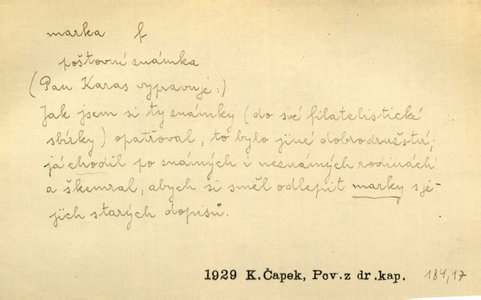 marka f
poštovní známka
(Pan Karas vypravuje:)
Jak jsem si ty známky (do své filatelistické
sbírky) opatřoval, to bylo jiné dobrodružství,
já chodil po známých i neznámých rodinách
a škemral, abych si směl odlepit marky s je-
jich starých dopisů.
1929 K.Čapek, Pov.z dr.kap. 184,17